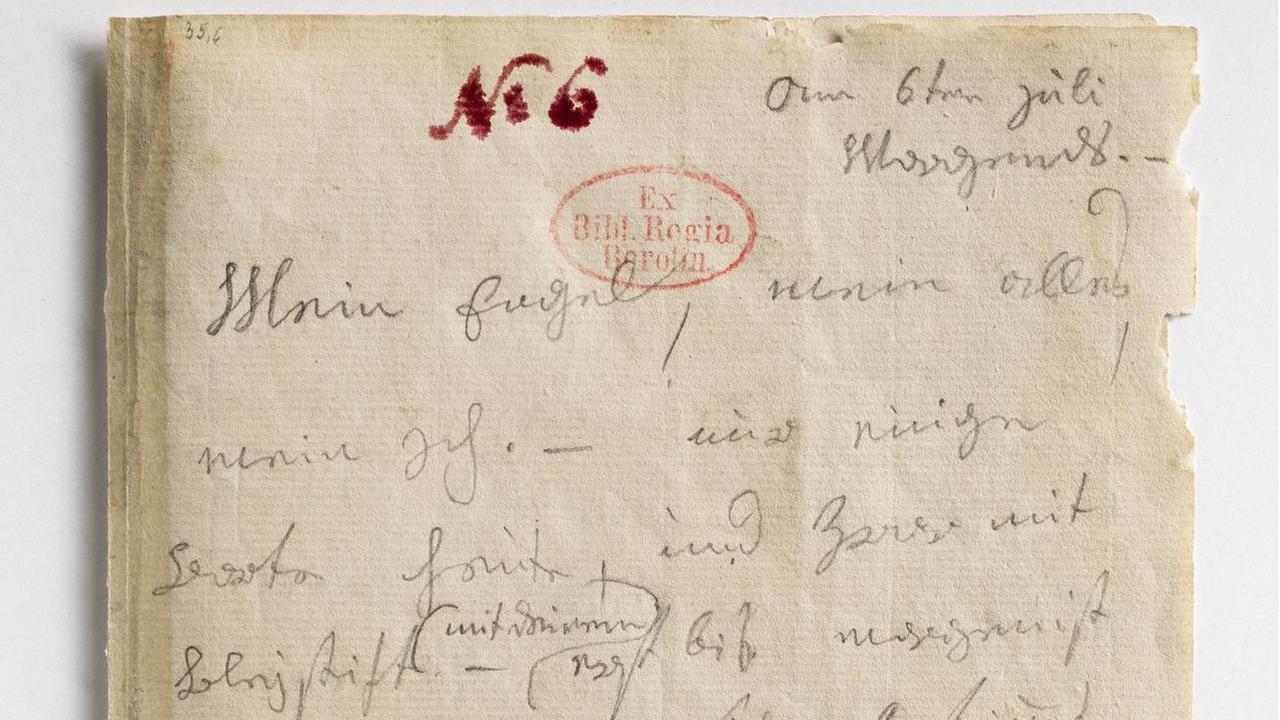 35,6
No 6
am 6ten juli
Morgends. –
Ex
Bibl. Regia
Berolin.
Mein Engel, mein alles,
mein Ich. – nur einige
Worte heute, und zwar mit
Bleystift – (mit deinem)
erst bis morgen ist